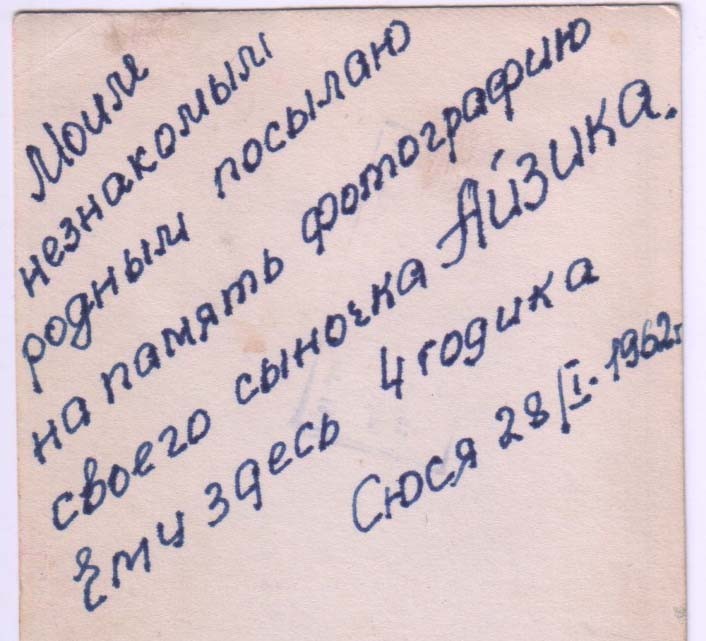 Моим
незнакомым
родным посылаю
на память фотографию
своего сыночка Айзика.
Ему здесь 4 годика
Сюся 28/I-1962г